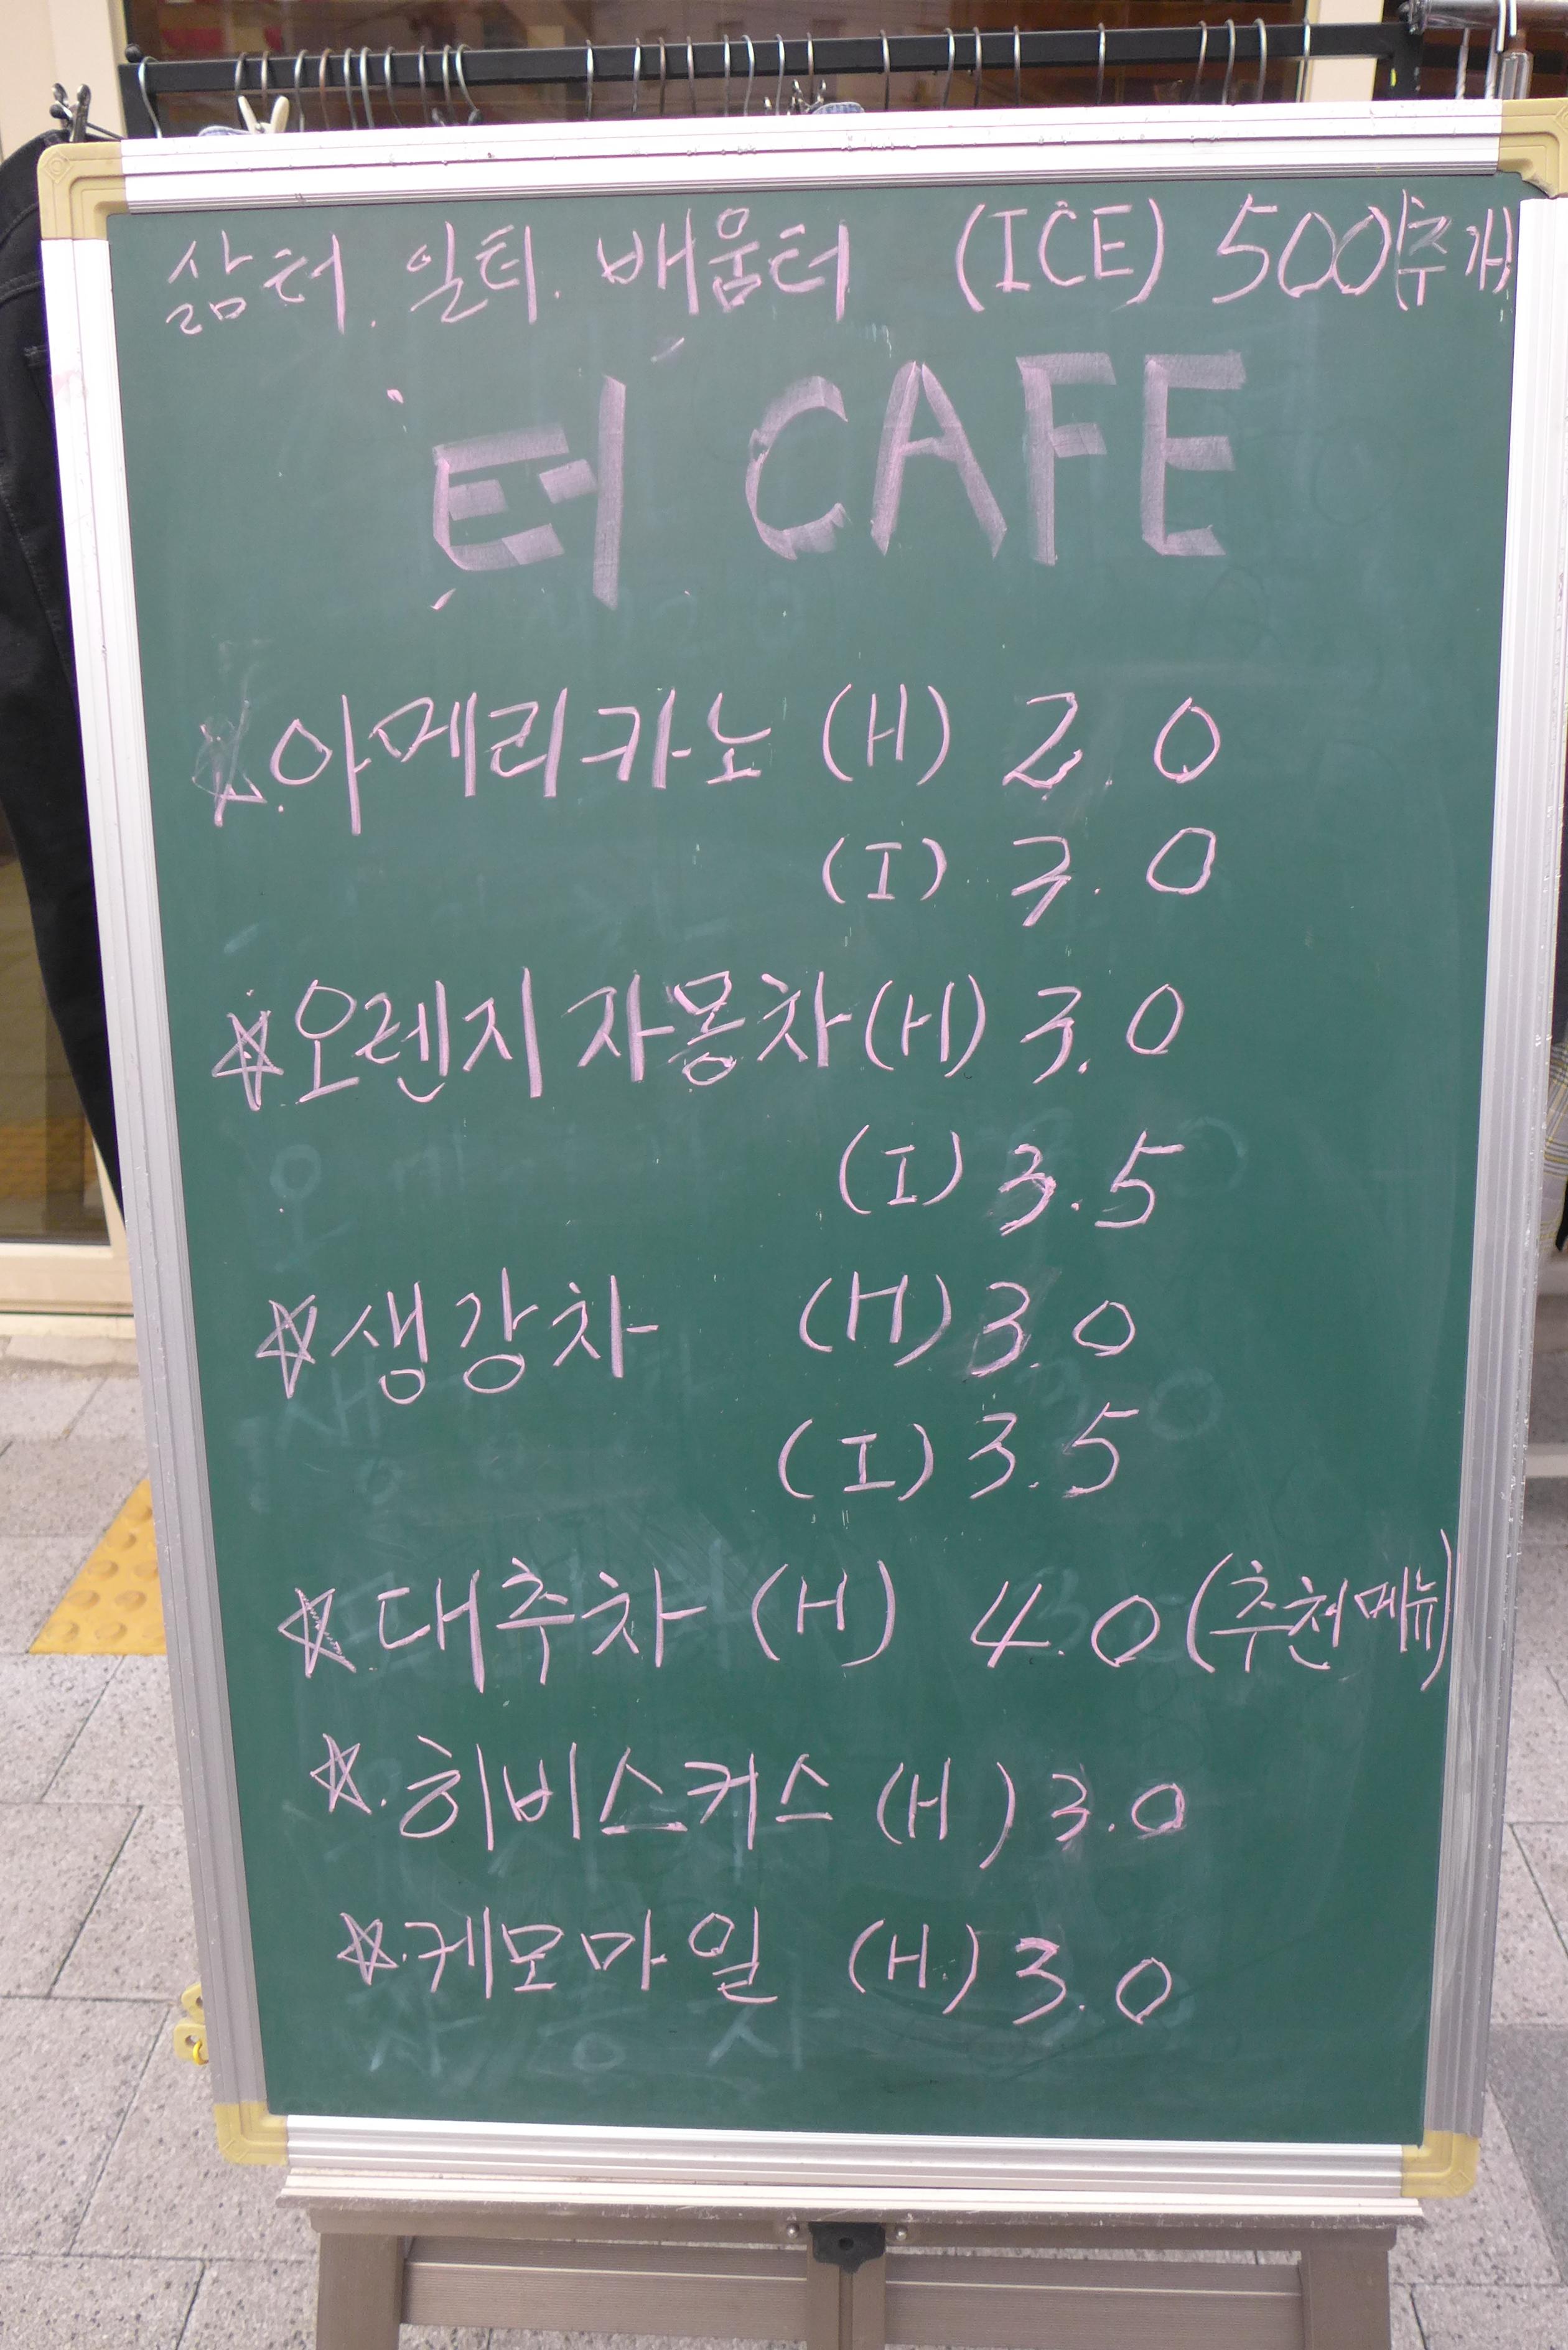 삶터. 일터. 배움터 (ICE) 500(추가)
터 CAFE
☆.아메리카노 (H) 2.0
(I) 3.0
☆오렌지 자몽차 (H) 3.0
(I) 3.5
☆생강차 (H) 3.0
(I) 3.5
☆대추차 (H) 4.0 (추천메뉴)
☆.히비스커스 (H) 3.0
☆.케모마일 (H) 3.0